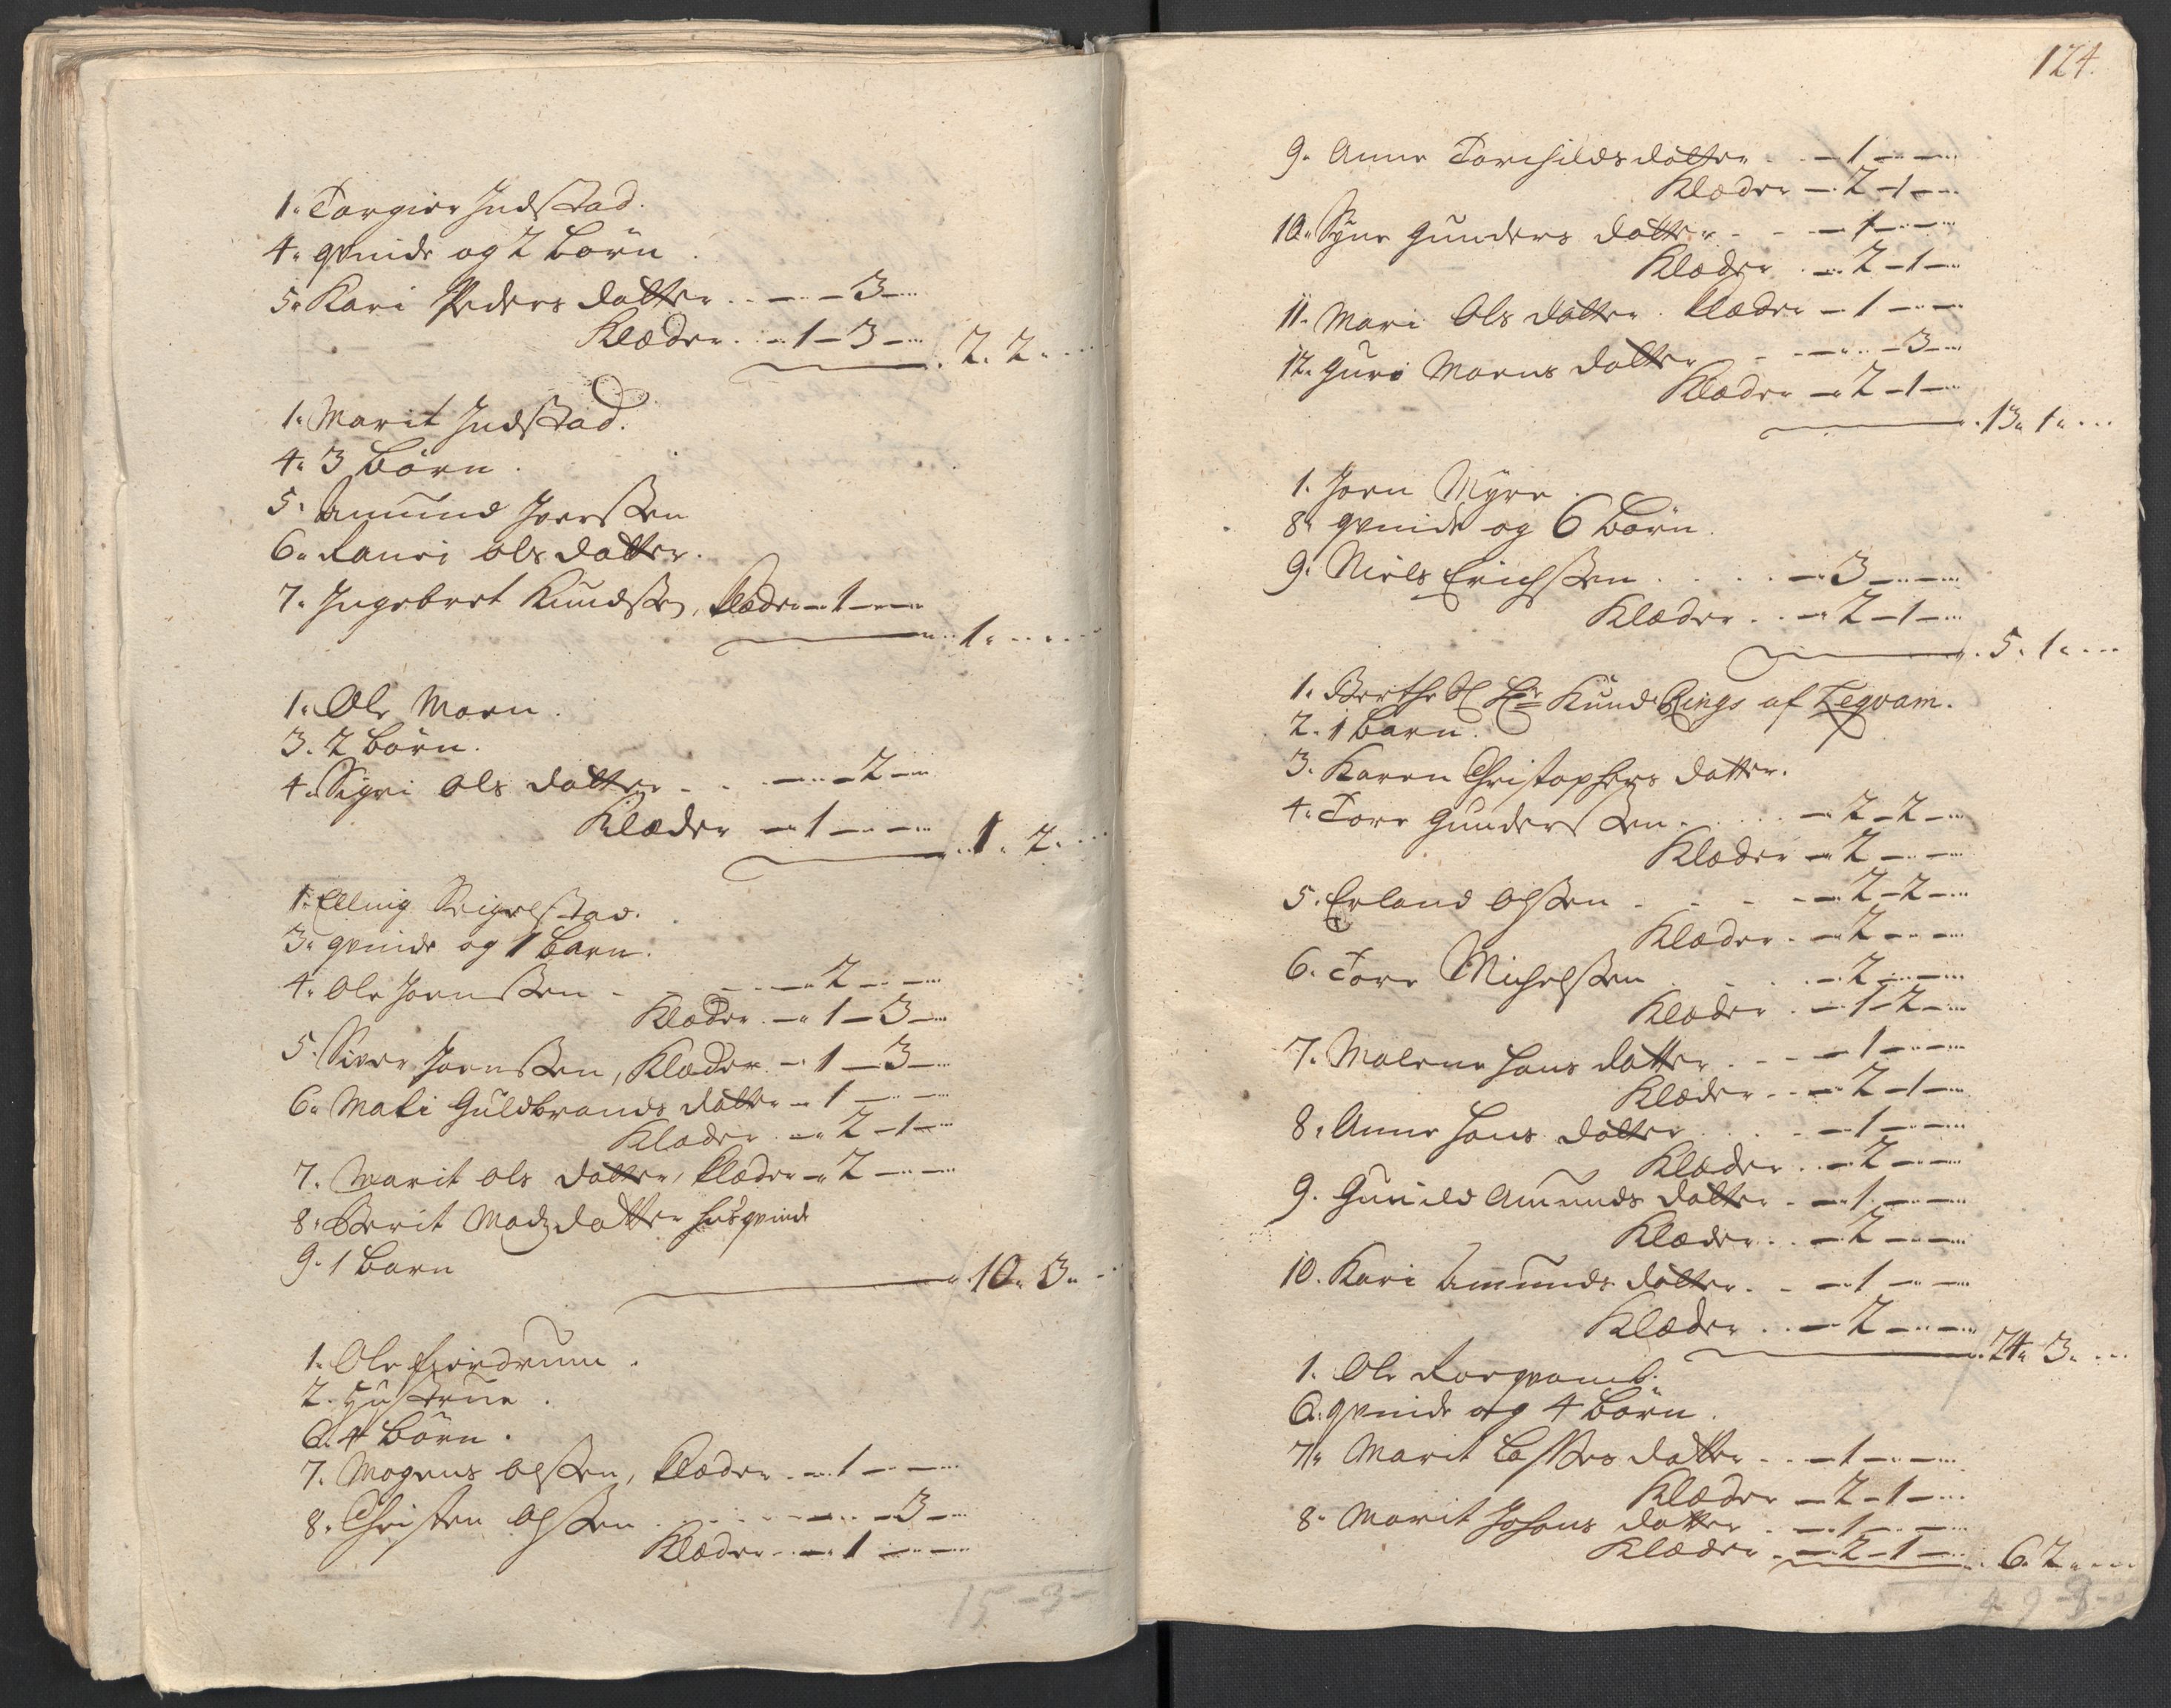 1. Torgier Indstad.
4. qvinde og 2 börn.
5. Kari Peders datter . . - - 3 -
Klæder . - 1 - 3 - . 2. 2.
1. Marit Indstad.
4. 3 börn.
5. Amund Iverssen
6. Ranei ols datter.
7. Ingebret Knudssen, klæder - 1 - -
1.
1. Ole Moen.
3. 2 börn.
4. Sigri Ols datter - . - - 2 -
Klæder - 1 - - . 1. 2.
1. Elling
3. qvinde og 1 barn.
4. Ole Joenssen - - - 2 - -
Klæder - 1 - 3 -
5. Siver Joenssen, Klæder - 1 - 3 -
6. Mali Guldbrands datter - 1 - -
Klæder - 2 - 1 -
7. Marit ols datter, klæder - 2 - -
8. Berit Madzdatter husqvinde
9. 1 barn
10. 3.
1. Ole
2. Hustrue.
6. 4 börn.
7. Mogens olssen, klæder - 1 - -
8. Christen olssen . . . - - 3 -
Klæder - 1 - -
15 - 3 -
124.
9. Anne Torchildsdatter . - 1 - -
Klæder - 2 - 1 -
10. Syne Gunders datter - - 1 - -
Klæder - 2 - 1 -
11. Mari Ols datter. klæder - 1 - -
12. Guri Moens datter - - - 3 -
Klæder - 2 - 1 -
13. 1.
1. Joen Myre.
8. qvinde og 6 börn.
9. Niels Erichssen . . . - 3 - -
Klæder . . - 2 - 1 -
5. 1.
1. Berthe Sl Hr Knud Rings af Legvam.
2. 1 barn.
3. Karen Christophers datter.
4. Tore Gunderssen . . . - 2 - 2 -
Klæder - 2 - -
5. Erland olssen - - - 2 - 2 -
Klæder - 2 - -
6. Tore Michelssen . . - 2 - -
Klæder . - 1 - 2 -
7. Malene Hans datter - - 1 - -
Klæder - 2 - 1 -
8. Anne Hans datter . . - 1 - -
Klæder . - 2 - -
9. Gunild Amunds datter - 1 - -
Klæder . . - 2 - -
10. Kari Amunds datter . - 1 - -
Klæder . . - 2 - -
24. 3.
1. Ole
6. qvinde og 4 börn.
7. Marit datter . . - 1 - -
Klæder - 2 - 1 -
8. Marit Johans datter . - 1 - -
Klæder - 2 - 1 - . 6. 2.
49 - 3 -